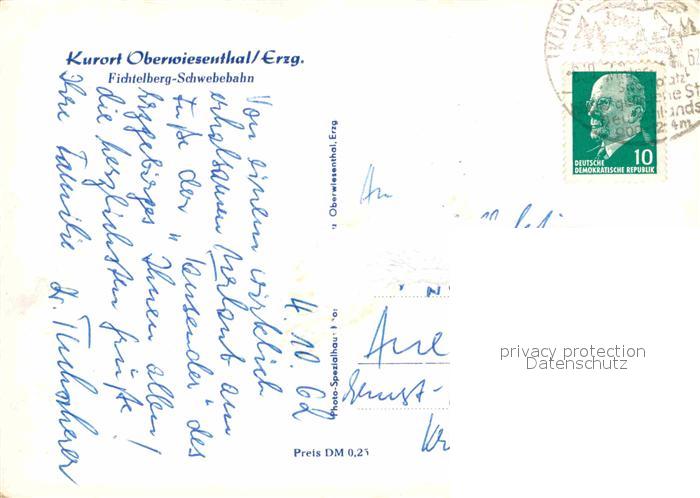 Kurort Oberwiesenthal/Erzg.
Fichtelberg-Schwebebahn
4.10.62
Von einem wirklich
erholsamen Urlaub am
Fuße der "Tausender" des
Erzgebirges Ihnen allen
die herzlichsten Grüße!
Ihre Familie Dr.
Photo-Spezialhaus
Oberwiesenthal, Erzg
Preis DM 0,25
KUROR
62
10
DEUTSCHE
DEMOKRATISCHE REPUBLIK
An
Aue
Ernst-
privacy protection
Datenschutz